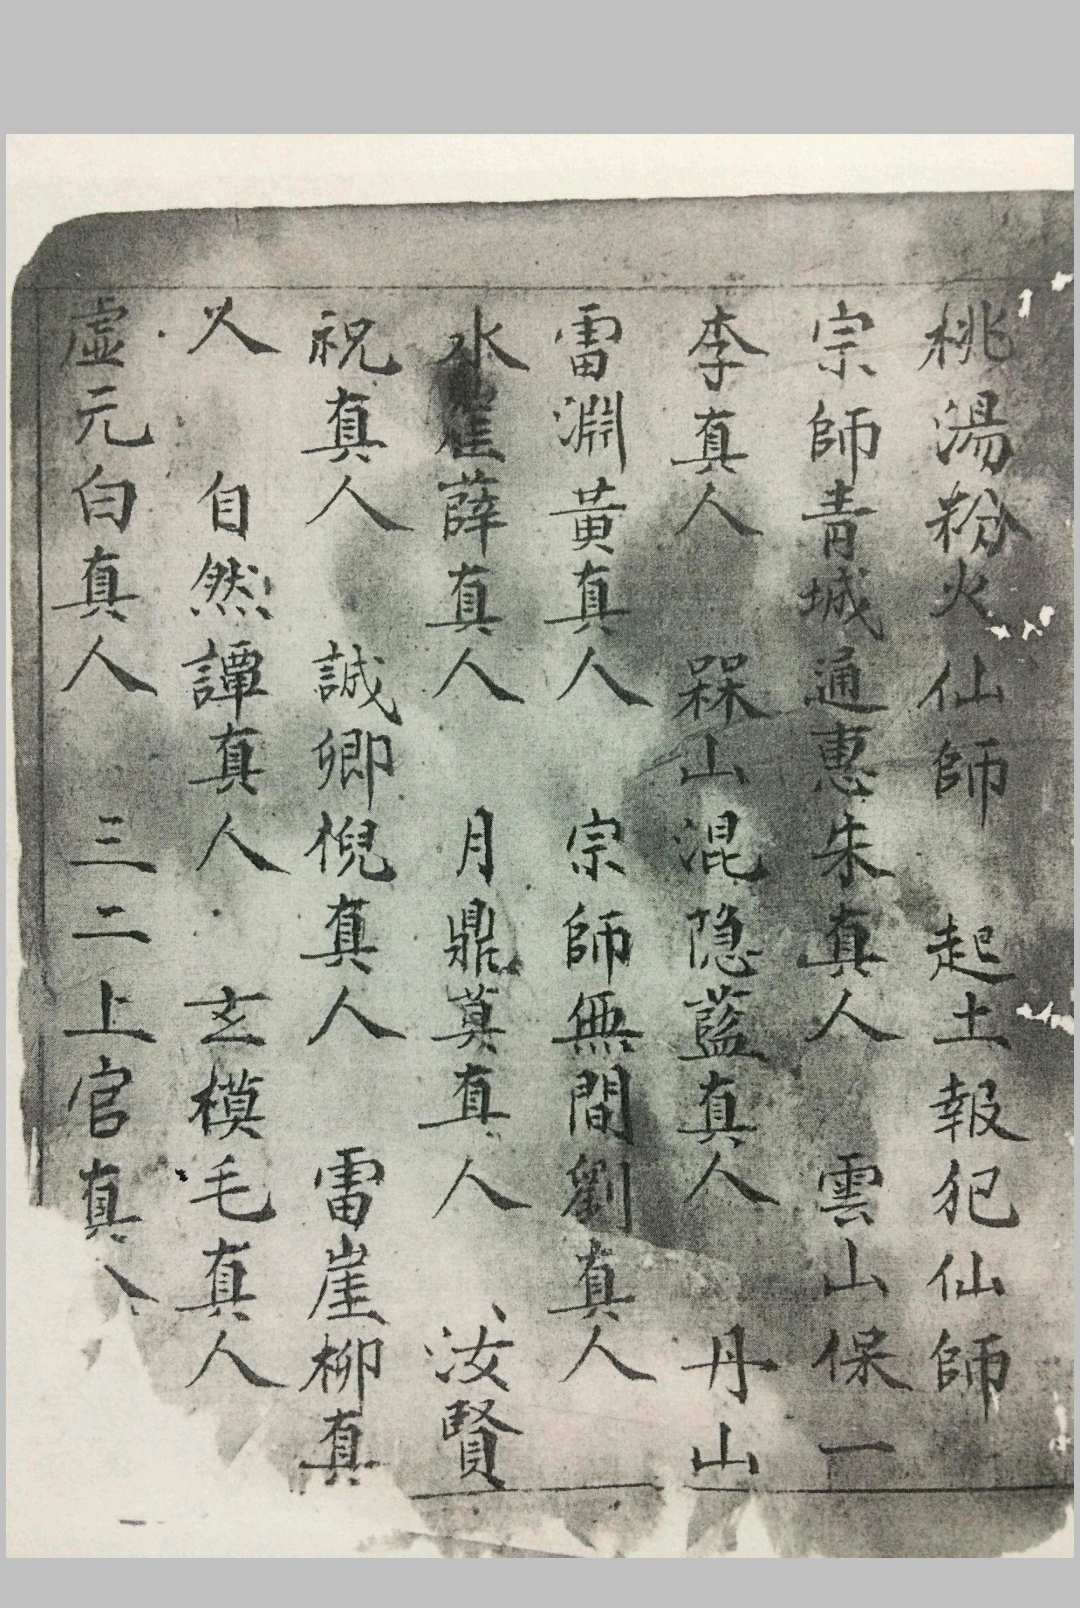 桃湯粉火仙師　起土報犯仙師
宗師青城通惠朱真人　雲山保一
李真人　槑山混隐藍真人　丹山
雷淵黃真人　宗師無間劉真人
水崖薛真人　月鼎莫真人　汝賢
祝真人　誠卿倪真人　雷崖柳真
人　自然譚真人　玄模毛真人
虛元白真人　三二上官真人